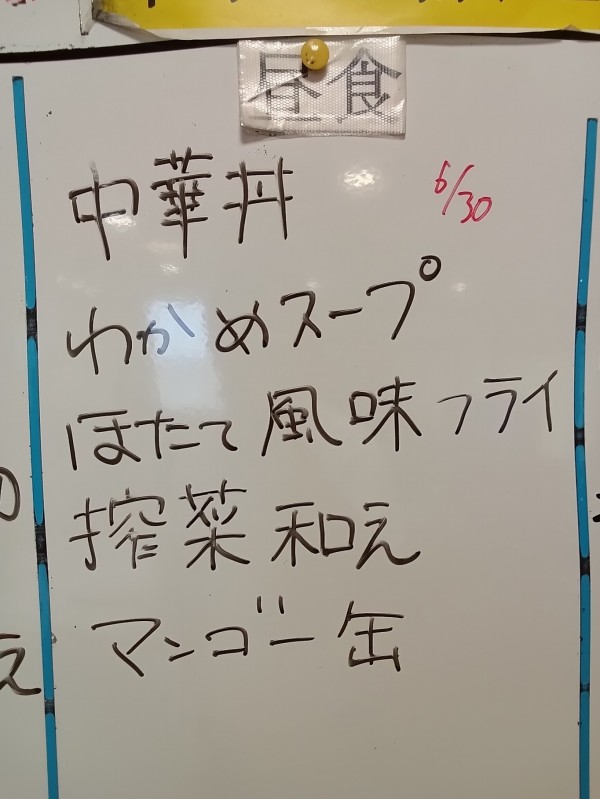 昼食
6/30
中華丼
わかめスープ
ほたて風味フライ
搾菜和え
マンゴー缶
え